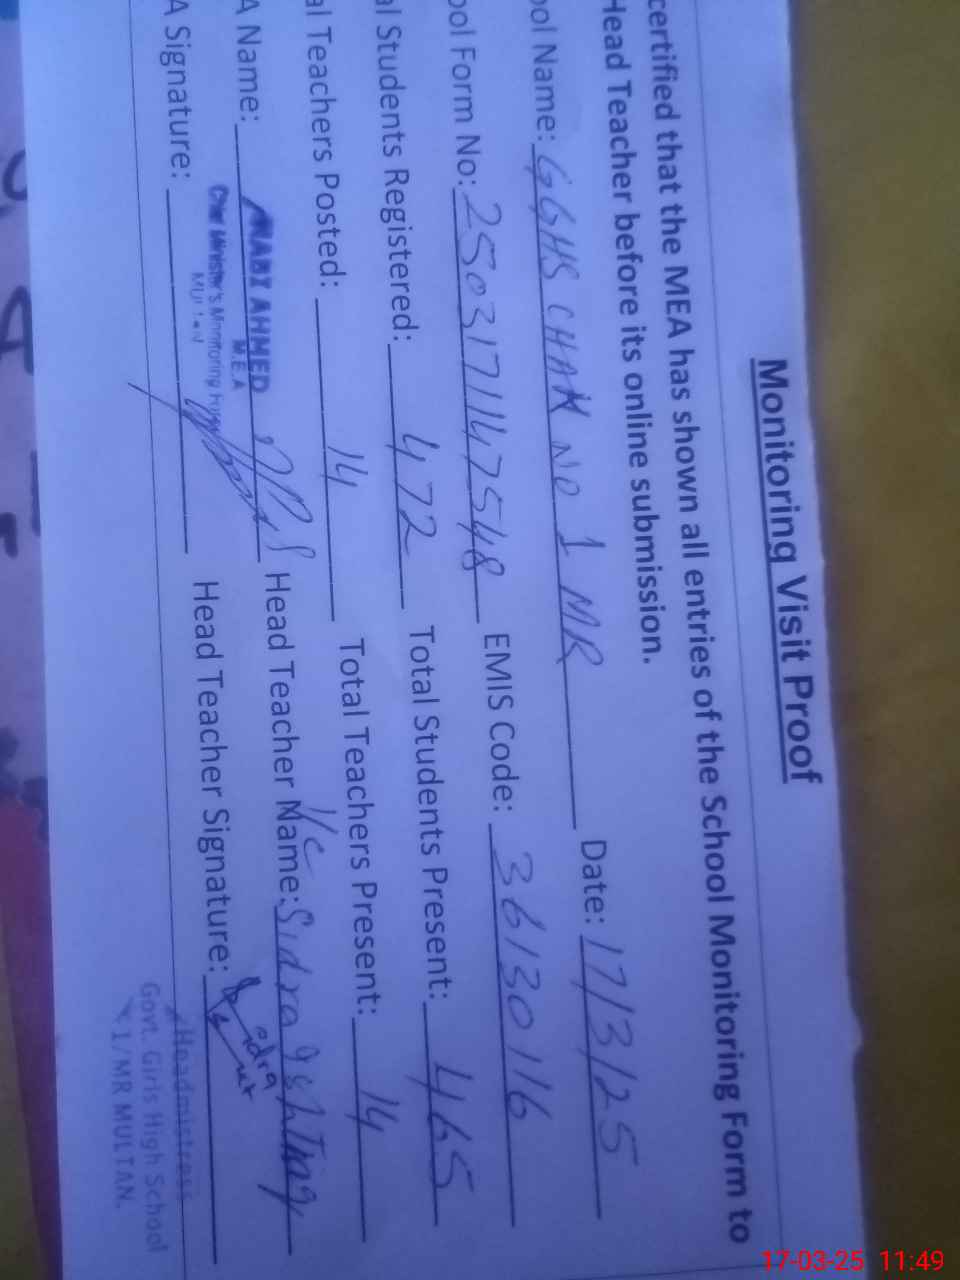 Monitoring Visit Proof
certified that the MEA has shown all entries of the School Monitoring Form to
Head Teacher before its online submission.
ool Name: GGHS CHAK NO 1 MR Date: 17/3/25
ool Form No: 2503171147548 EMIS Code: 36130116
al Students Registered: 472 Total Students Present: 465
al Teachers Posted: 14 Total Teachers Present: 14
A Name: NABI AHMED Head Teacher Name: I/C Sidra
M.E.A
Chief Minister's Monitoring
MULTAN
A Signature: Head Teacher Signature: Sidra
Headmistress
Govt. Girls High School
1/MR MULTAN.
17-03-25 11:49